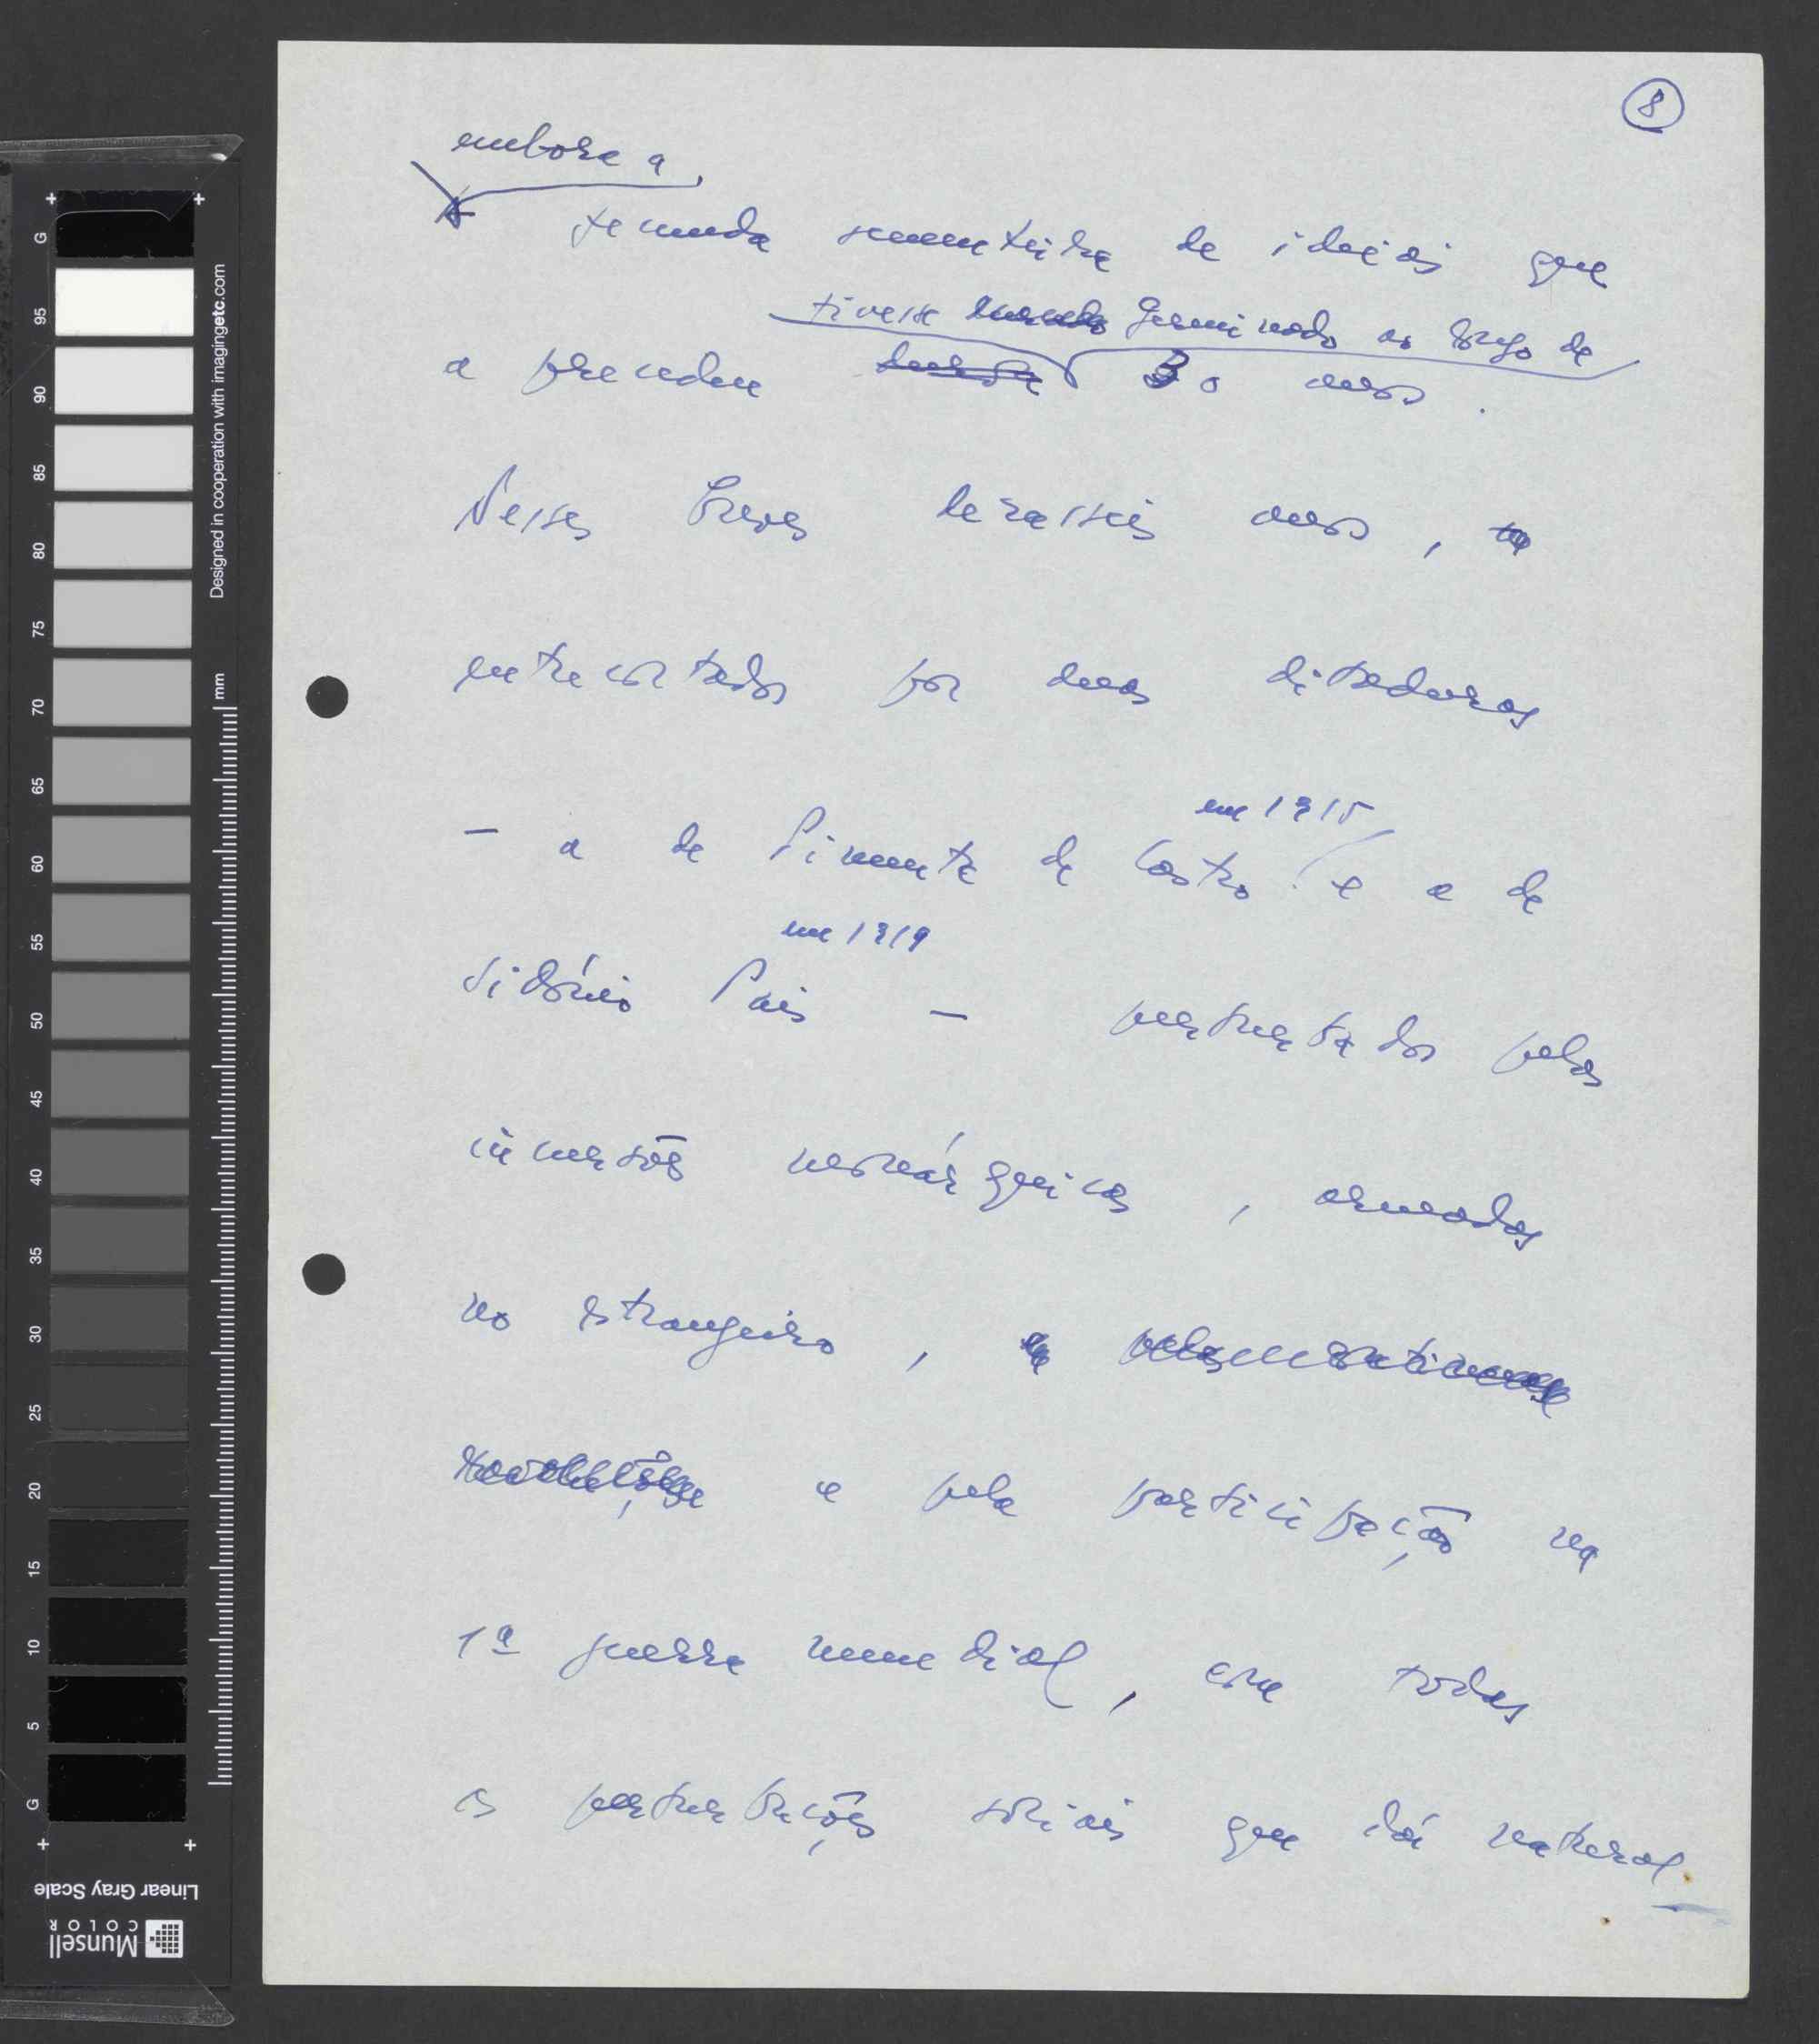 8
embora a
fecunda sementeira de ideias que
tivesse germinado ao longo de
a precedeu 30 anos.
Nesses breves dezasseis anos,
entrecortados por duas ditaduras
em 1915
— a de Pimenta de Castro e a de
em 1919
Sidónio Pais — perturbados pelas
incursões monárquicas, armadas
no estrangeiro,
e pela participação na
1ª guerra mundial, com todas
as perturbações sociais que daí natural-
Designed in cooperation with imagingetc.com
mm
G 95 90 85 80 75 70 65 60 55 50 45 40 35 30 25 20 15 10 5 G
Linear Gray Scale
Munsell
COLOR